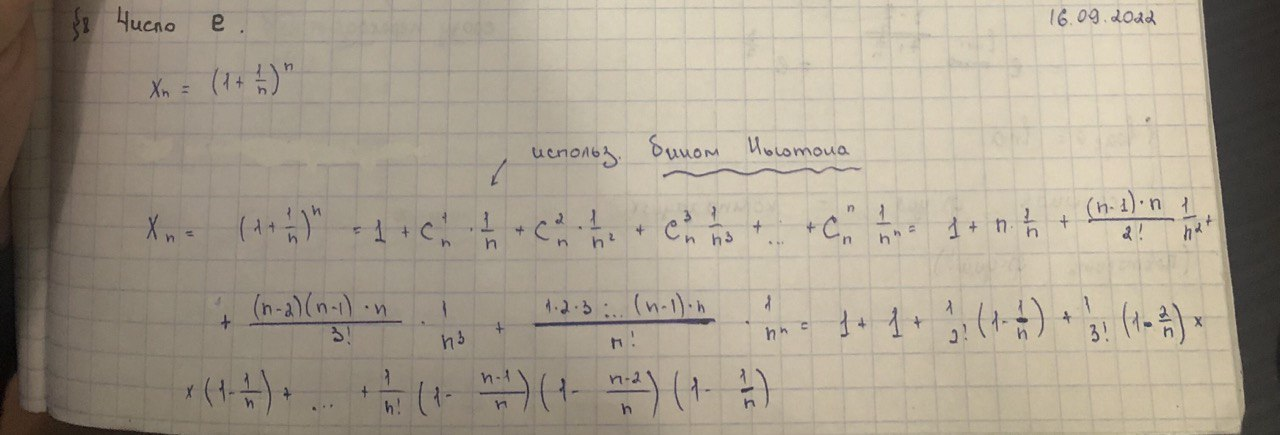 §8 Число e. 16.09.2022
xₙ = (1 + 1/n)ⁿ
использ. бином Ньютона
Xₙ = (1 + 1/n)ⁿ = 1 + Cₙ¹ · 1/n + Cₙ² · 1/n² + Cₙ³ 1/n³ + ... + Cₙⁿ 1/nⁿ = 1 + n · 1/n + (n-1)·n/2! 1/n² +
+ (n-2)(n-1)·n/3! · 1/n³ + 1·2·3·...(n-1)·n/n! · 1/nⁿ = 1 + 1 + 1/2! (1 - 1/n) + 1/3! (1 - 2/n) ×
× (1 - 1/n) + ... + 1/n! (1 - (n-1)/n) (1 - (n-2)/n) (1 - 1/n)